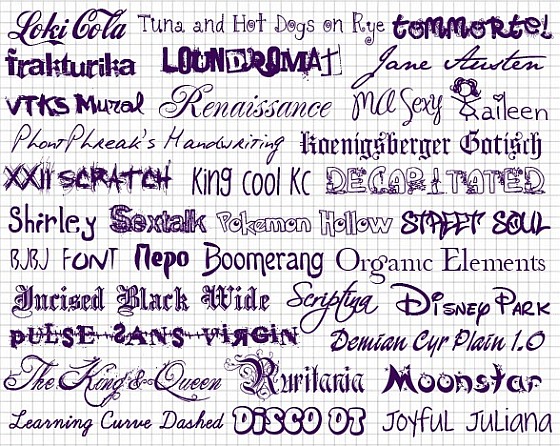 Loki Cola Tuna and Hot Dogs on Rye tommortel
frakturika LOUNDROMAT Jane Austen
VTKS Mural Renaissance MA Sexy Kaileen
PhontPhreak's Handwriting Koenigsberger Gotisch
XXII SCRATCH King Cool KC DECAPITATED
Shirley Sextalk Pokemon Hollow STREET SOUL
BJBJ FONT Nepo Boomerang Organic Elements
Incised Black Wide Scriptina Disney Park
PULSE SANS ViRGiN Demian Cyr Plain 1.0
The King & Queen Ruritania Moonstar
Learning Curve Dashed DISCO DT Joyful Juliana